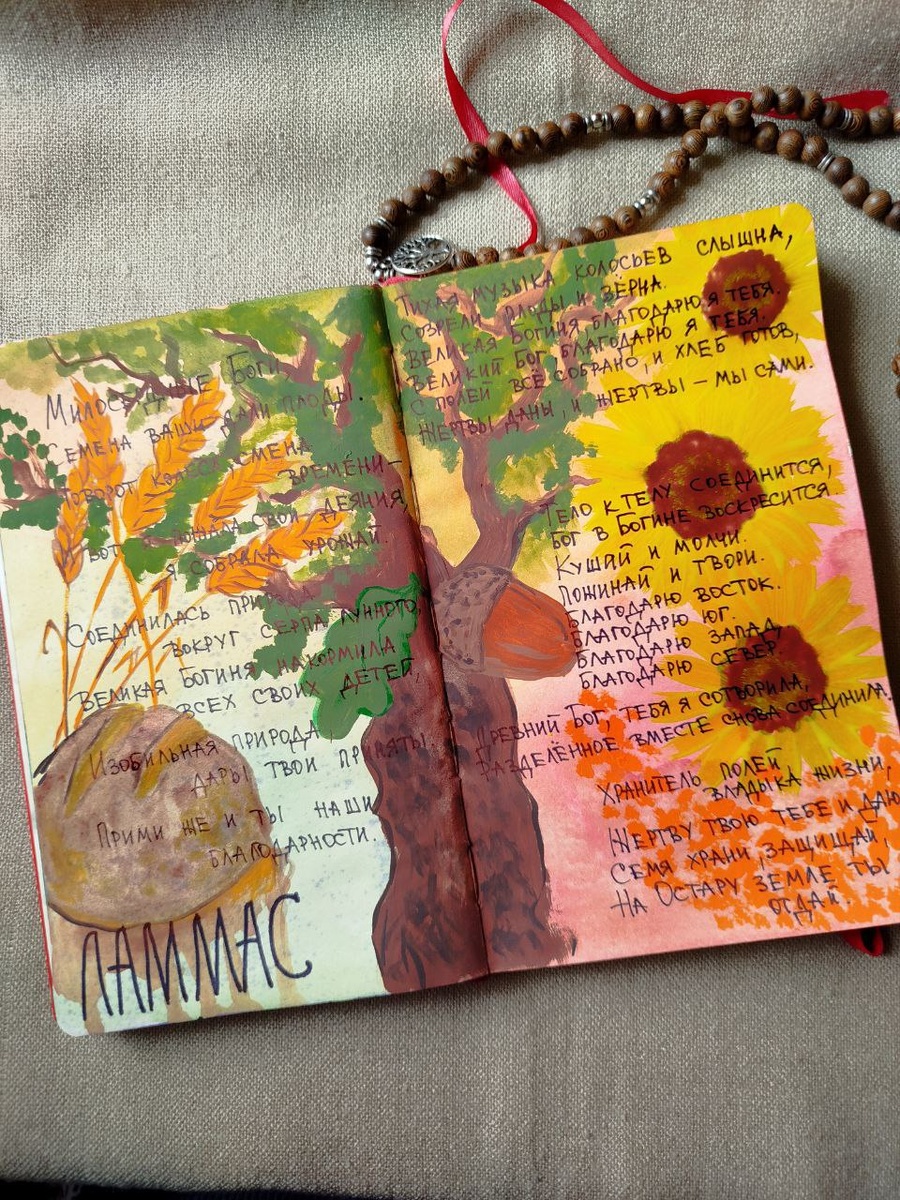 Милосердные Боги,
Семена ваши дали плоды.
Поворот колеса, смена
времени–
И вот я пожала свои деяния,
я собрала урожай.
Соединилась природа
вокруг серпа лунного.
Великая Богиня накормила
всех своих детей,
Изобильная природа,
дары твои приняты.
Прими же и ты наши
благодарности.
ЛАММАС
Тихая музыка колосьев слышна,
Созрели плоды и зёрна.
Великая Богиня благодарю я тебя.
Великий Бог, благодарю я тебя.
С полей всё собрано, и хлеб готов,
Жертвы даны, и жертвы – мы сами.
Тело к телу соединится,
Бог в Богине воскресится.
Кушай и молчи.
Пожинай и твори.
Благодарю Восток.
Благодарю Юг.
Благодарю Запад.
Благодарю Север.
Древний Бог, тебя я сотворила,
Разделённое вместе снова соединила.
Хранитель полей,
владыка жизни,
Жертву твою тебе и даю
Семя храни, защищай,
На Остару земле ты
отдай.